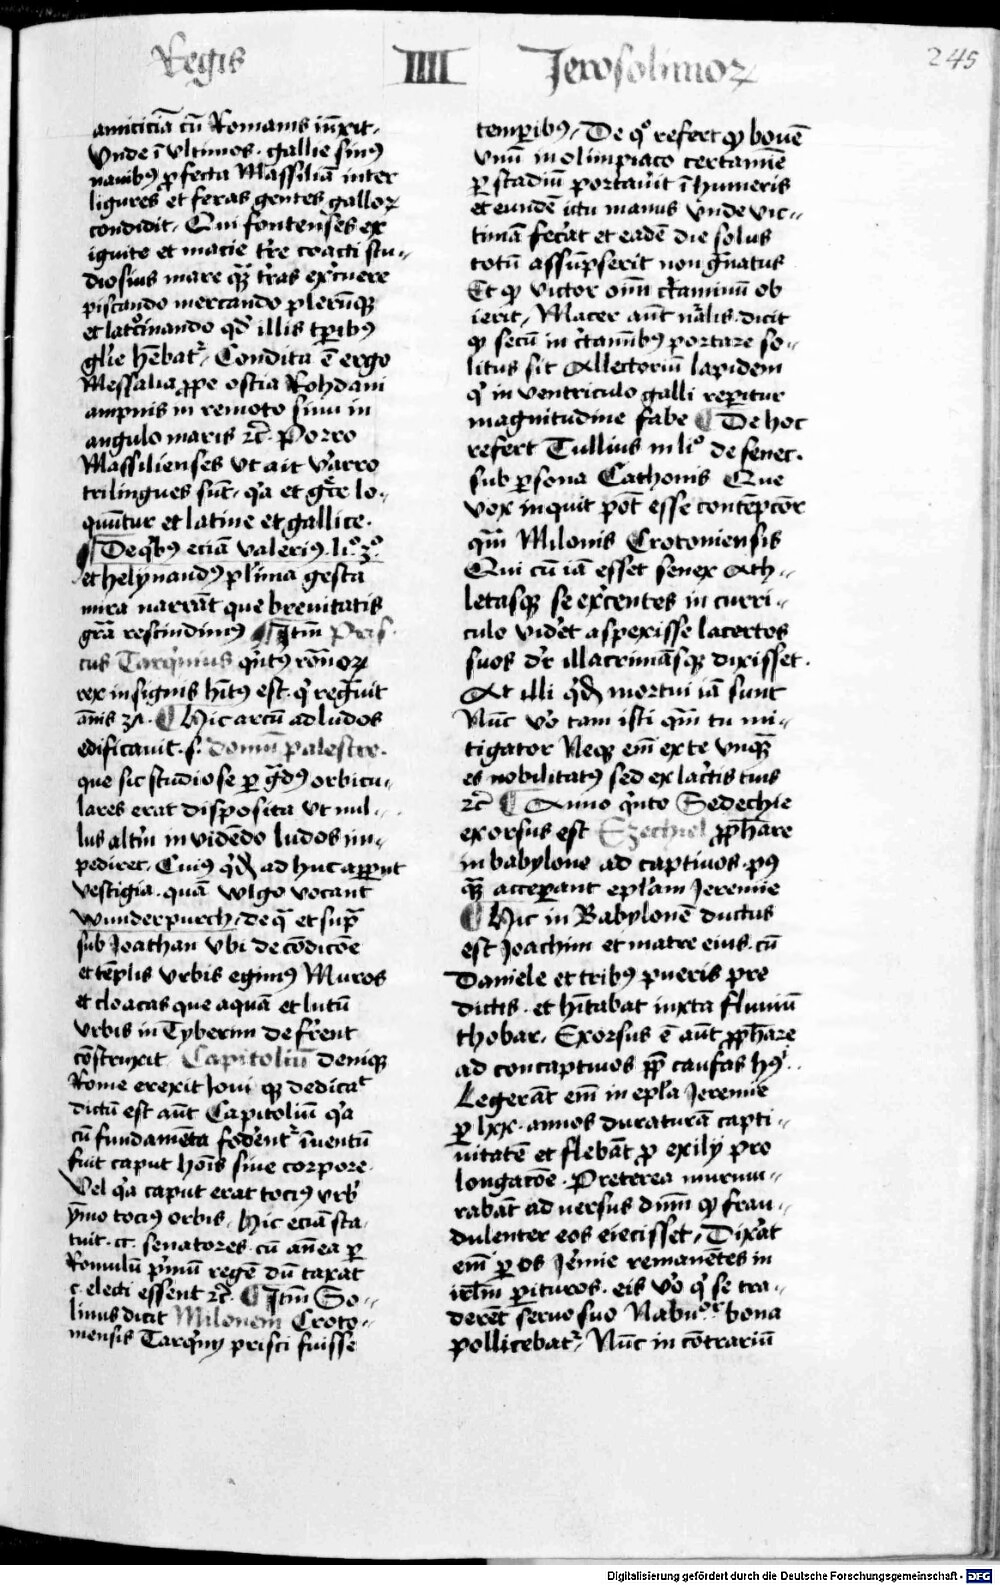 Regis IIII Jerosolimoꝝ 245
amiciciā cū Romanis iūxit.
Vnde ī vltimos gallie sinꝰ
nauibꝰ ꝓfecta Massiliā inter
ligures et feras gentes galloꝝ
condidit. Qui fontenses ex
iguite et macie tr̄e coacti stu-
diosius mare qꝫ t̄ras ex̄cuere
piscando mercando plerūqꝫ
et latͦcinando qd̓ illis tꝑibꝰ
gl̓ie hēbat᷑. Condita ē ergo
Messalia ꝓpe ostia Rohdani
ampnis in remoto sinu in
angulo maris ⁊c̄. Porro
Massilienses vt ait Varro
trilingues sūt, qͥa et gr̄ce lo-
quūtur et latine et gallice.
¶ De qͥbꝰ eciā valeriꝰ liͦ 3ͦ
et helynandꝰ pl̓ima gesta
mira narrāt que breuitatis
gr̄a rescindimꝰ ¶ Itm̄ Pris-
cus Tarqͥnius qͥntꝰ rōnoꝝ
rex insignis hītꝰ est. qͥ regͣuit
ānis 37. ¶ Hic arcū ad ludos
edificauit .s. domū palestre.
que sic studiose ꝑ gͣdꝰ orbicu-
lares erat disposita vt nul-
lus alt̓m in vidēdo ludos im-
pediret. Cuiꝰ qͥdē ad huc apparūt
vestigia. quā wlgo vocant
wunderpurch. de qͣ et supͣ
sub Joathan vbi de cōdicōe
et tēplis vrbis egimꝰ Muros
et cloacas que aquā et lutū
vrbis in Tyberim defer̄ent
cōstruxit. Capitoliū deniqꝫ
Rome erexit Joui qꝫ dedicaᵗ
dictū est aūt Capitoliū qͥa
cū fundamēta foderent᷑ īuentū
fuit caput hoīs siue corpore.
Vel qͥa caput erat tociꝰ vrbꝭ
ymo tociꝰ orbis. Hic eciā sta-
tuit .cc. senatores. cū an̄ ea ꝑ
Romulū pͥmū regē dū taxat
c. electi essent ⁊c̄. ¶ Itm̄ So-
linus dicit Milonem Croto-
niensis Tarqͥnij prisci fuisse
temꝑibꝰ. De qͦ refert ꝙ bouē
vnū in olimpiaco certamīe
ꝑ stadiū portauit ī humeris
et eundē ictu manus vnde vic-
timā fec̄at et eadē die solus
totū assūpserit non gͣuatus
Et ꝙ victor oīm c̄taminū ob
ierit. Macer aūt n̄alis dicit
ꝙ secū in c̄taminibꝰ portare so-
litus sit Allectoriū lapidem
qͥ in ventriculo galli reꝑitur
magnitudine fabe ¶ De hoc
refert Tullius in liͦ de senec.
sub ꝑsona Cathonis Que
vox inquit pōt esse contēpcōr
qͣm Milonis Crotoniensis
Qui cū iā esset senex Ath-
letasqꝫ se ex̄centes in curri-
culo vid̓et aspexisse lacertos
suos dr̄ illacrimāsqꝫ dixisset.
At illi qͥdē mortui iā sunt
Nūc vͦo tam isti qͣm tu mi-
tigator Neqꝫ em̄ ex te vnqͣ
es nobilitatꝰ sed ex lac̄tis tuis
⁊c̄ ¶ Anno qͥnto Sedechie
exorsus est Ezechiel ꝓph̄are
in babylone ad captiuos pꝰ
qͣ acceꝑant epl̓am Jeremie
¶ Hic in Babylonē ductus
est Joachim et matre eius cū
Daniele et tribꝰ pueris pre
dictis. et hītabat iuxta fluuiū
thobar. Exorsus ē aūt ꝓph̄are
ad concaptiuos ꝓpͭ causas hꝰ.
Legerāt em̄ in epl̓a Jeremie
ꝑ lxx. annos duraturā capti-
uitatē et flebāt ꝓ exilij pro
longacōe. Preterea murmu-
rabāt aduersus dn̄m ꝙ frau-
dulenter eos eiecisset. Dix̓at
em̄ ꝑ os J̓emie remanētes in
irl̓m ꝑituros. eis vͦo qͥ se tra-
derēt seruo suo Nabuͦᶜ bona
pollicebat᷑. Nūc in cōtrariū
Digitalisierung gefördert durch die Deutsche Forschungsgemeinschaft - DFG